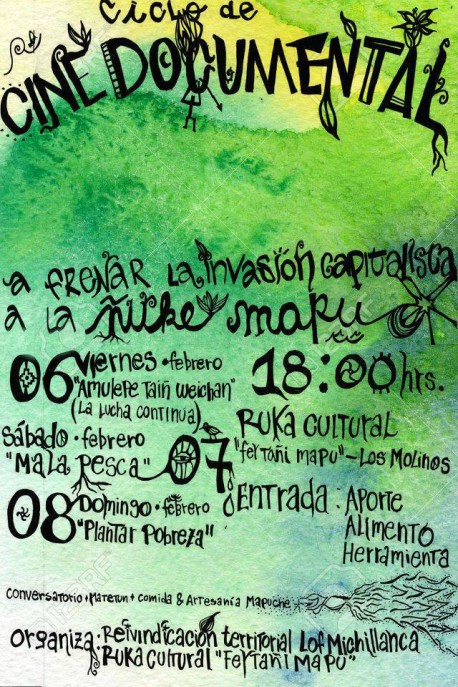 Ciclo de
CINE DOCUMENTAL
a FRENAR La invasión capitalista
a La Ñuke mapu
06 Viernes · febrero
"Amulepe Taiñ Weichan"
(La Lucha continua)
18:00 hrs.
Sábado · febrero 07
"Mala Pesca"
RUKA CULTURAL
"feyTañi mapu" - Los Molinos
08 Domingo · febrero
"Plantar Pobreza"
Entrada: Aporte
Alimento
Herramienta
Conversatorio + Matetun + comida & Artesanía Mapuche
organiza · Reivindicación territorial Lof Michillanca
Ruka cultural "FeyTañi Mapu"